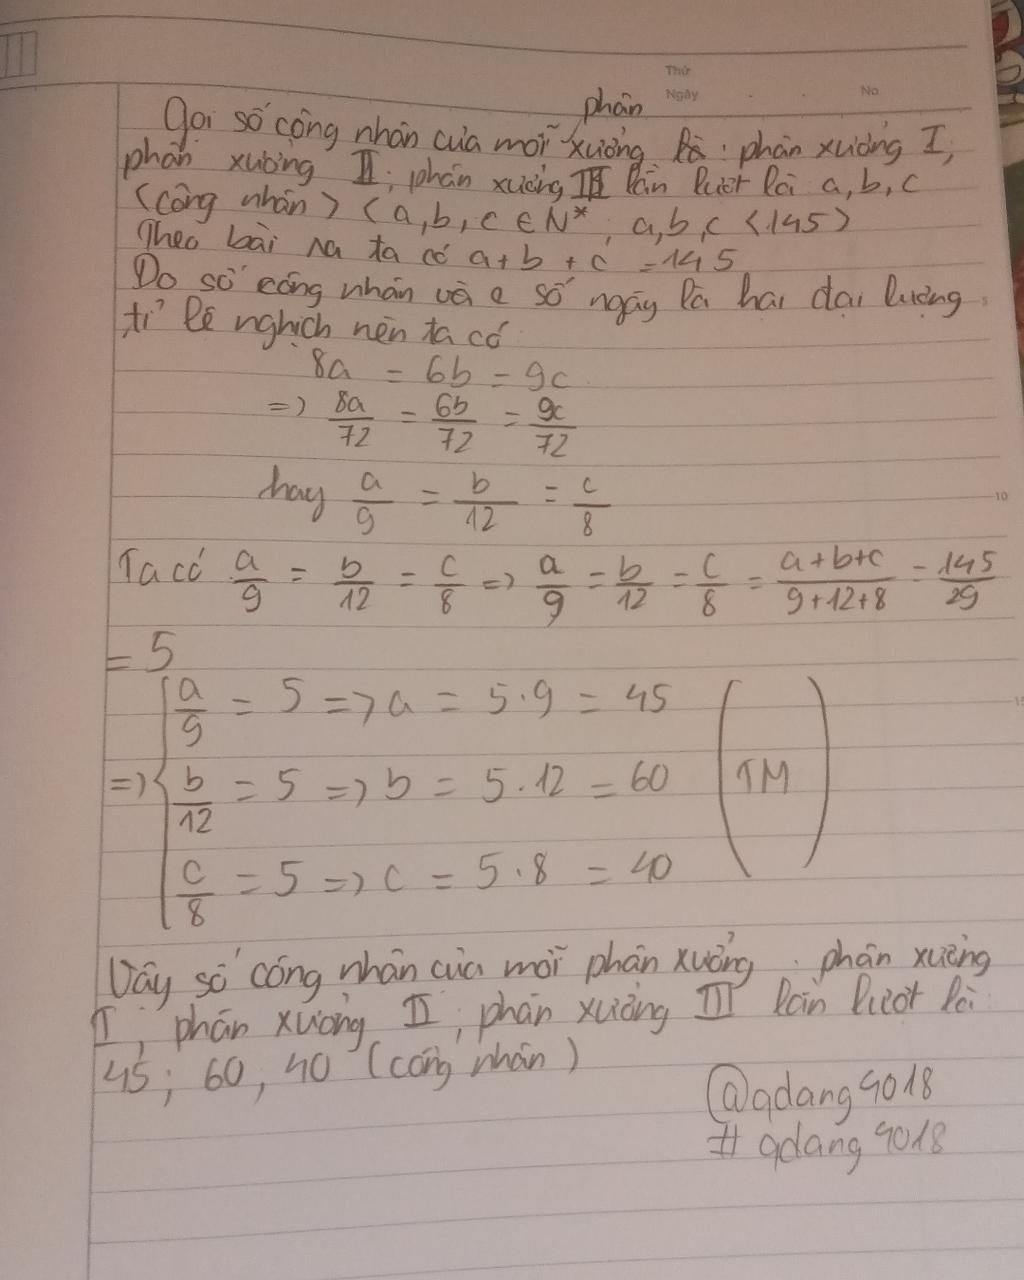 Thứ
Ngày . . No
Gọi số công nhân của mỗi phân xưởng là: phân xưởng I;
phân xưởng II; phân xưởng III lần lượt là a, b, c
(công nhân) (a,b,c ∈ N*; a,b,c < 145)
Theo bài ra ta có a+b+c = 145
Do số công nhân và số ngày là hai đại lượng
tỉ lệ nghịch nên ta có
8a = 6b = 9c
=> 8a/72 = 6b/72 = 9c/72
hay a/9 = b/12 = c/8
10
Ta có a/9 = b/12 = c/8 => a/9 = b/12 = c/8 = a+b+c/9+12+8 = 145/29
= 5
a/9 = 5 => a = 5.9 = 45
15
=> { b/12 = 5 => b = 5.12 = 60 (TM)
c/8 = 5 => c = 5.8 = 40
Vậy số công nhân của mỗi phân xưởng . phân xưởng
I; phân xưởng II; phân xưởng III lần lượt là
45; 60; 40 (công nhân)
@qdang9018
# qdang9018